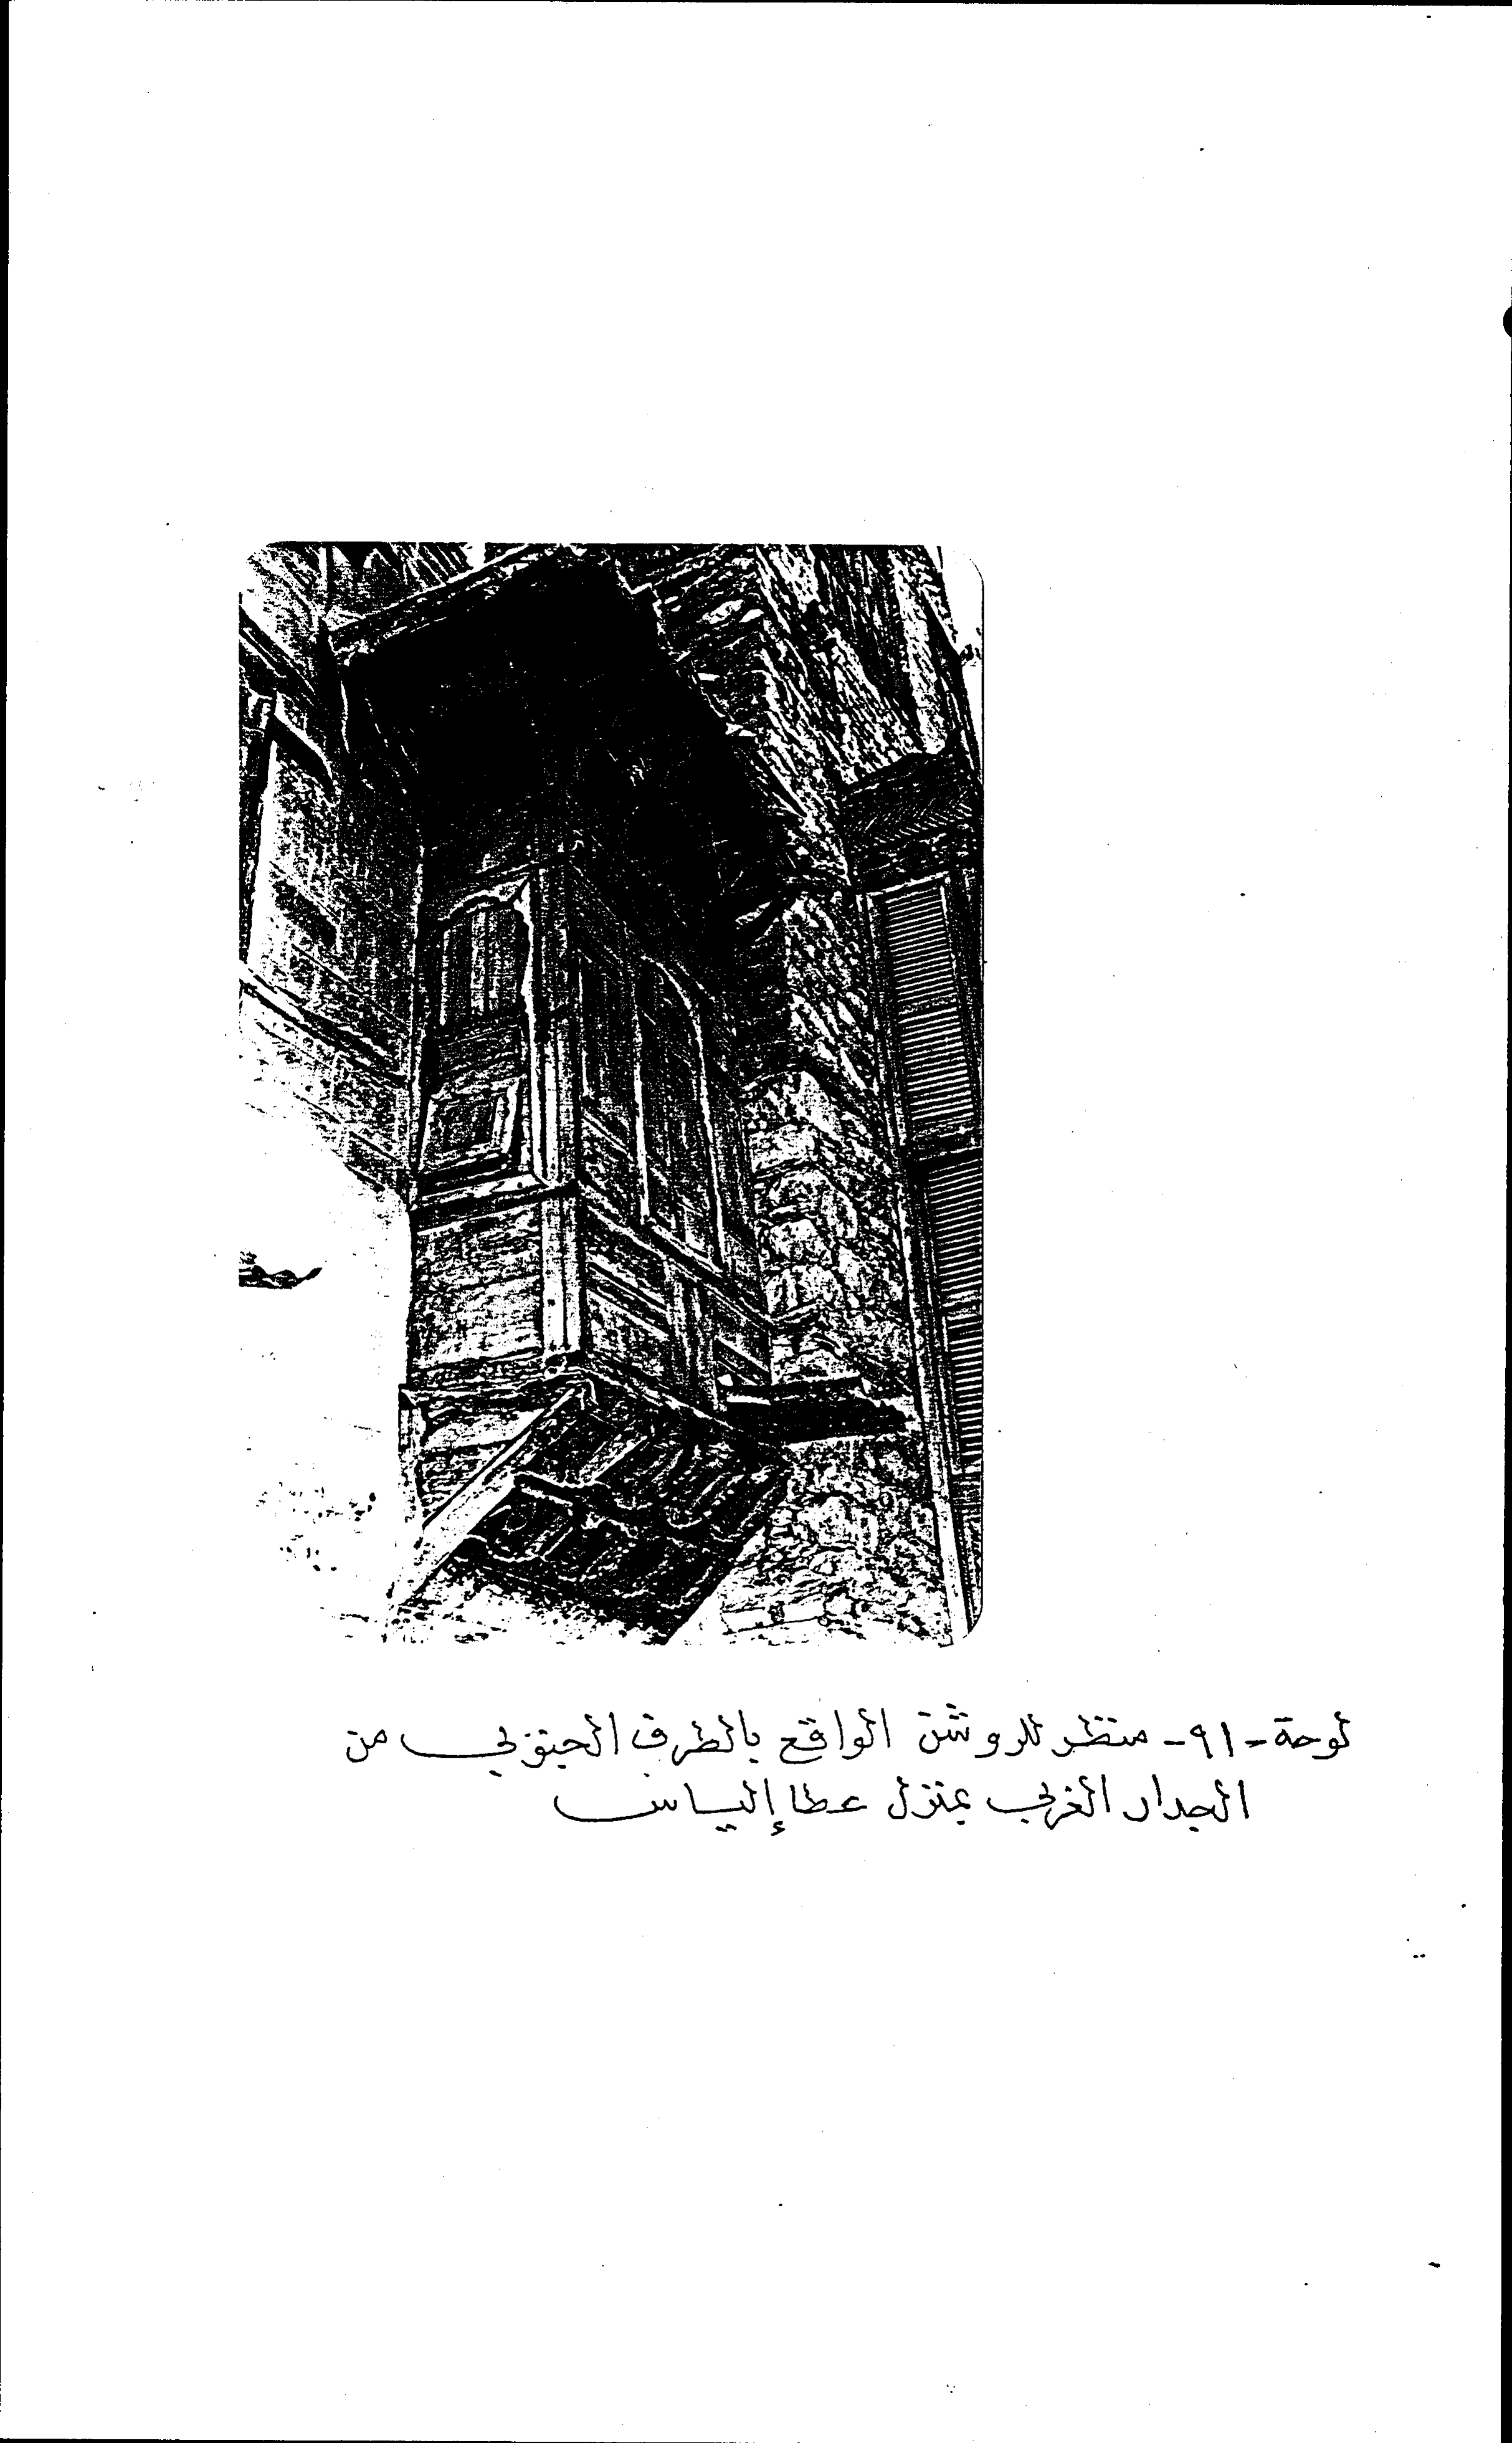 لوحة - ٩١ - منظر للروشن الواقع بالطرف الجنوبي من
الجدار الغربي بمنزل عطا إلياس